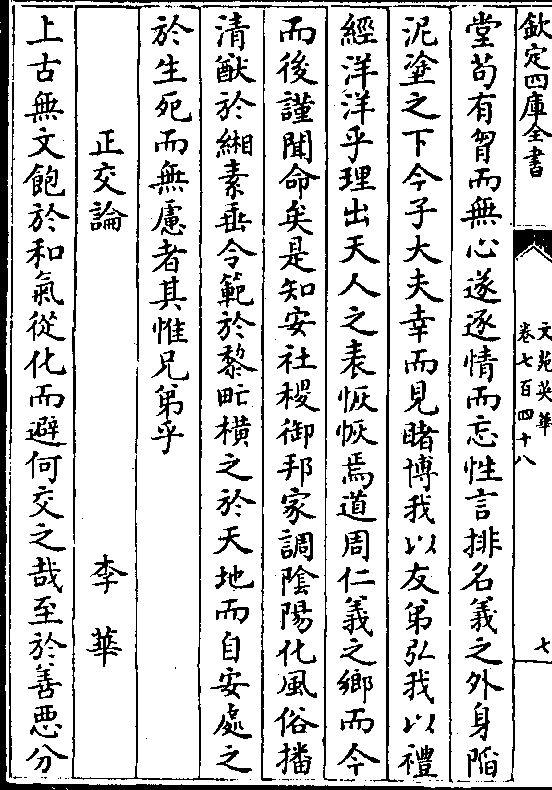 欽定四庫全書
文苑英華
卷七百四十八
七
堂苟有胷而無心遂逐情而忘性言排名義之外身陷
泥塗之下今子大夫幸而見睹博我以友弟弘我以禮
經洋洋乎理出天人之表恢恢焉道周仁義之鄉而今
而後謹聞命矣是知安社稷御邦家調隂陽化風俗播
清猷於緗素垂令範於黎甿橫之於天地而自安處之
於生死而無慮者其惟兄弟乎
正交論
李華
上古無文飽於和氣從化而避何交之哉至於善惡分